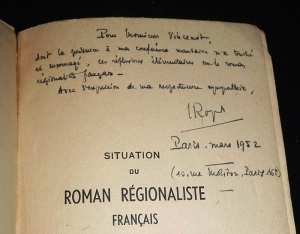 Pour Monsieur Vincenot,
dont la présence à ma conférence nantaise m'a touché
et encouragé, ces réflexions élémentaires sur le roman
régionaliste français.
Avec l'expression de ma respectueuse sympathie,
Paris, mars 1952
(10, rue Molitor, Paris 16e)
SITUATION
DU
ROMAN RÉGIONALISTE
FRANÇAIS